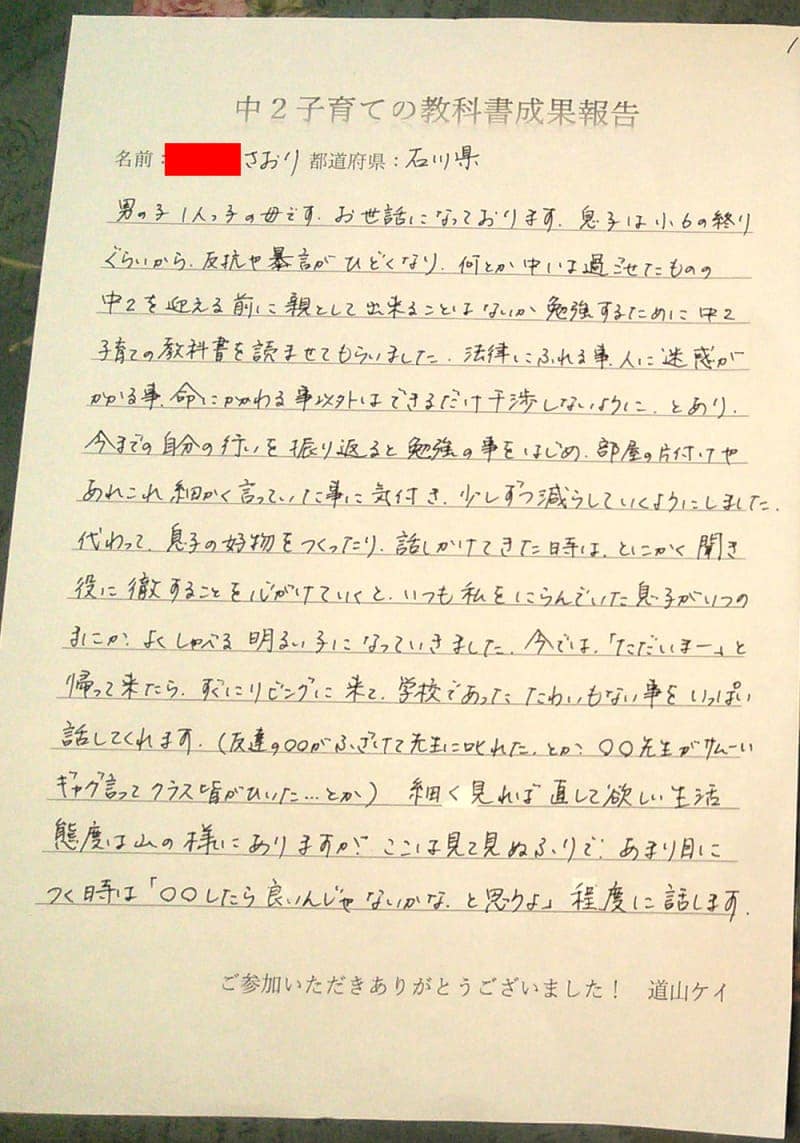 1
中2子育ての教科書成果報告
名前: さおり 都道府県:石川県
男の子1人っ子の母です. お世話になっております. 息子は小6の終り
ぐらいから、反抗や暴言がひどくなり、何とか中1は過ごせたものの
中2を迎える前に親として出来ることはないか勉強するために中2
子育ての教科書を読ませてもらいました. 法律にふれる事、人に迷惑が
かかる事、命にかかわる事以外はできるだけ干渉しないように、とあり、
今までの自分の行いを振り返ると勉強の事をはじめ、部屋の片付けや
あれこれ細かく言っていた事に気付き、少しずつ減らしていくようにしました.
代わって、息子の好物をつくったり、話しかけてきた時は、とにかく聞き
役に徹することを心がけていくと、いつも私をにらんでいた息子がいつの
まにか、よくしゃべる明るい子になっていきました. 今では、「ただいまー」と
帰って来たら、すぐにリビングに来て、学校であったたわいもない事をいっぱい
話してくれます. (友達の○○がふざけて先生に叱れた、とか、○○先生がサムーい
ギャグ言ってクラス皆がひいた…とか) 細く見れば直して欲しい生活
態度は山の様にありますが、ここは見て見ぬふりで、あまり目に
つく時は「○○したら良いんじゃないかな、と思うよ」程度に話します.
ご参加いただきありがとうございました! 道山ケイ